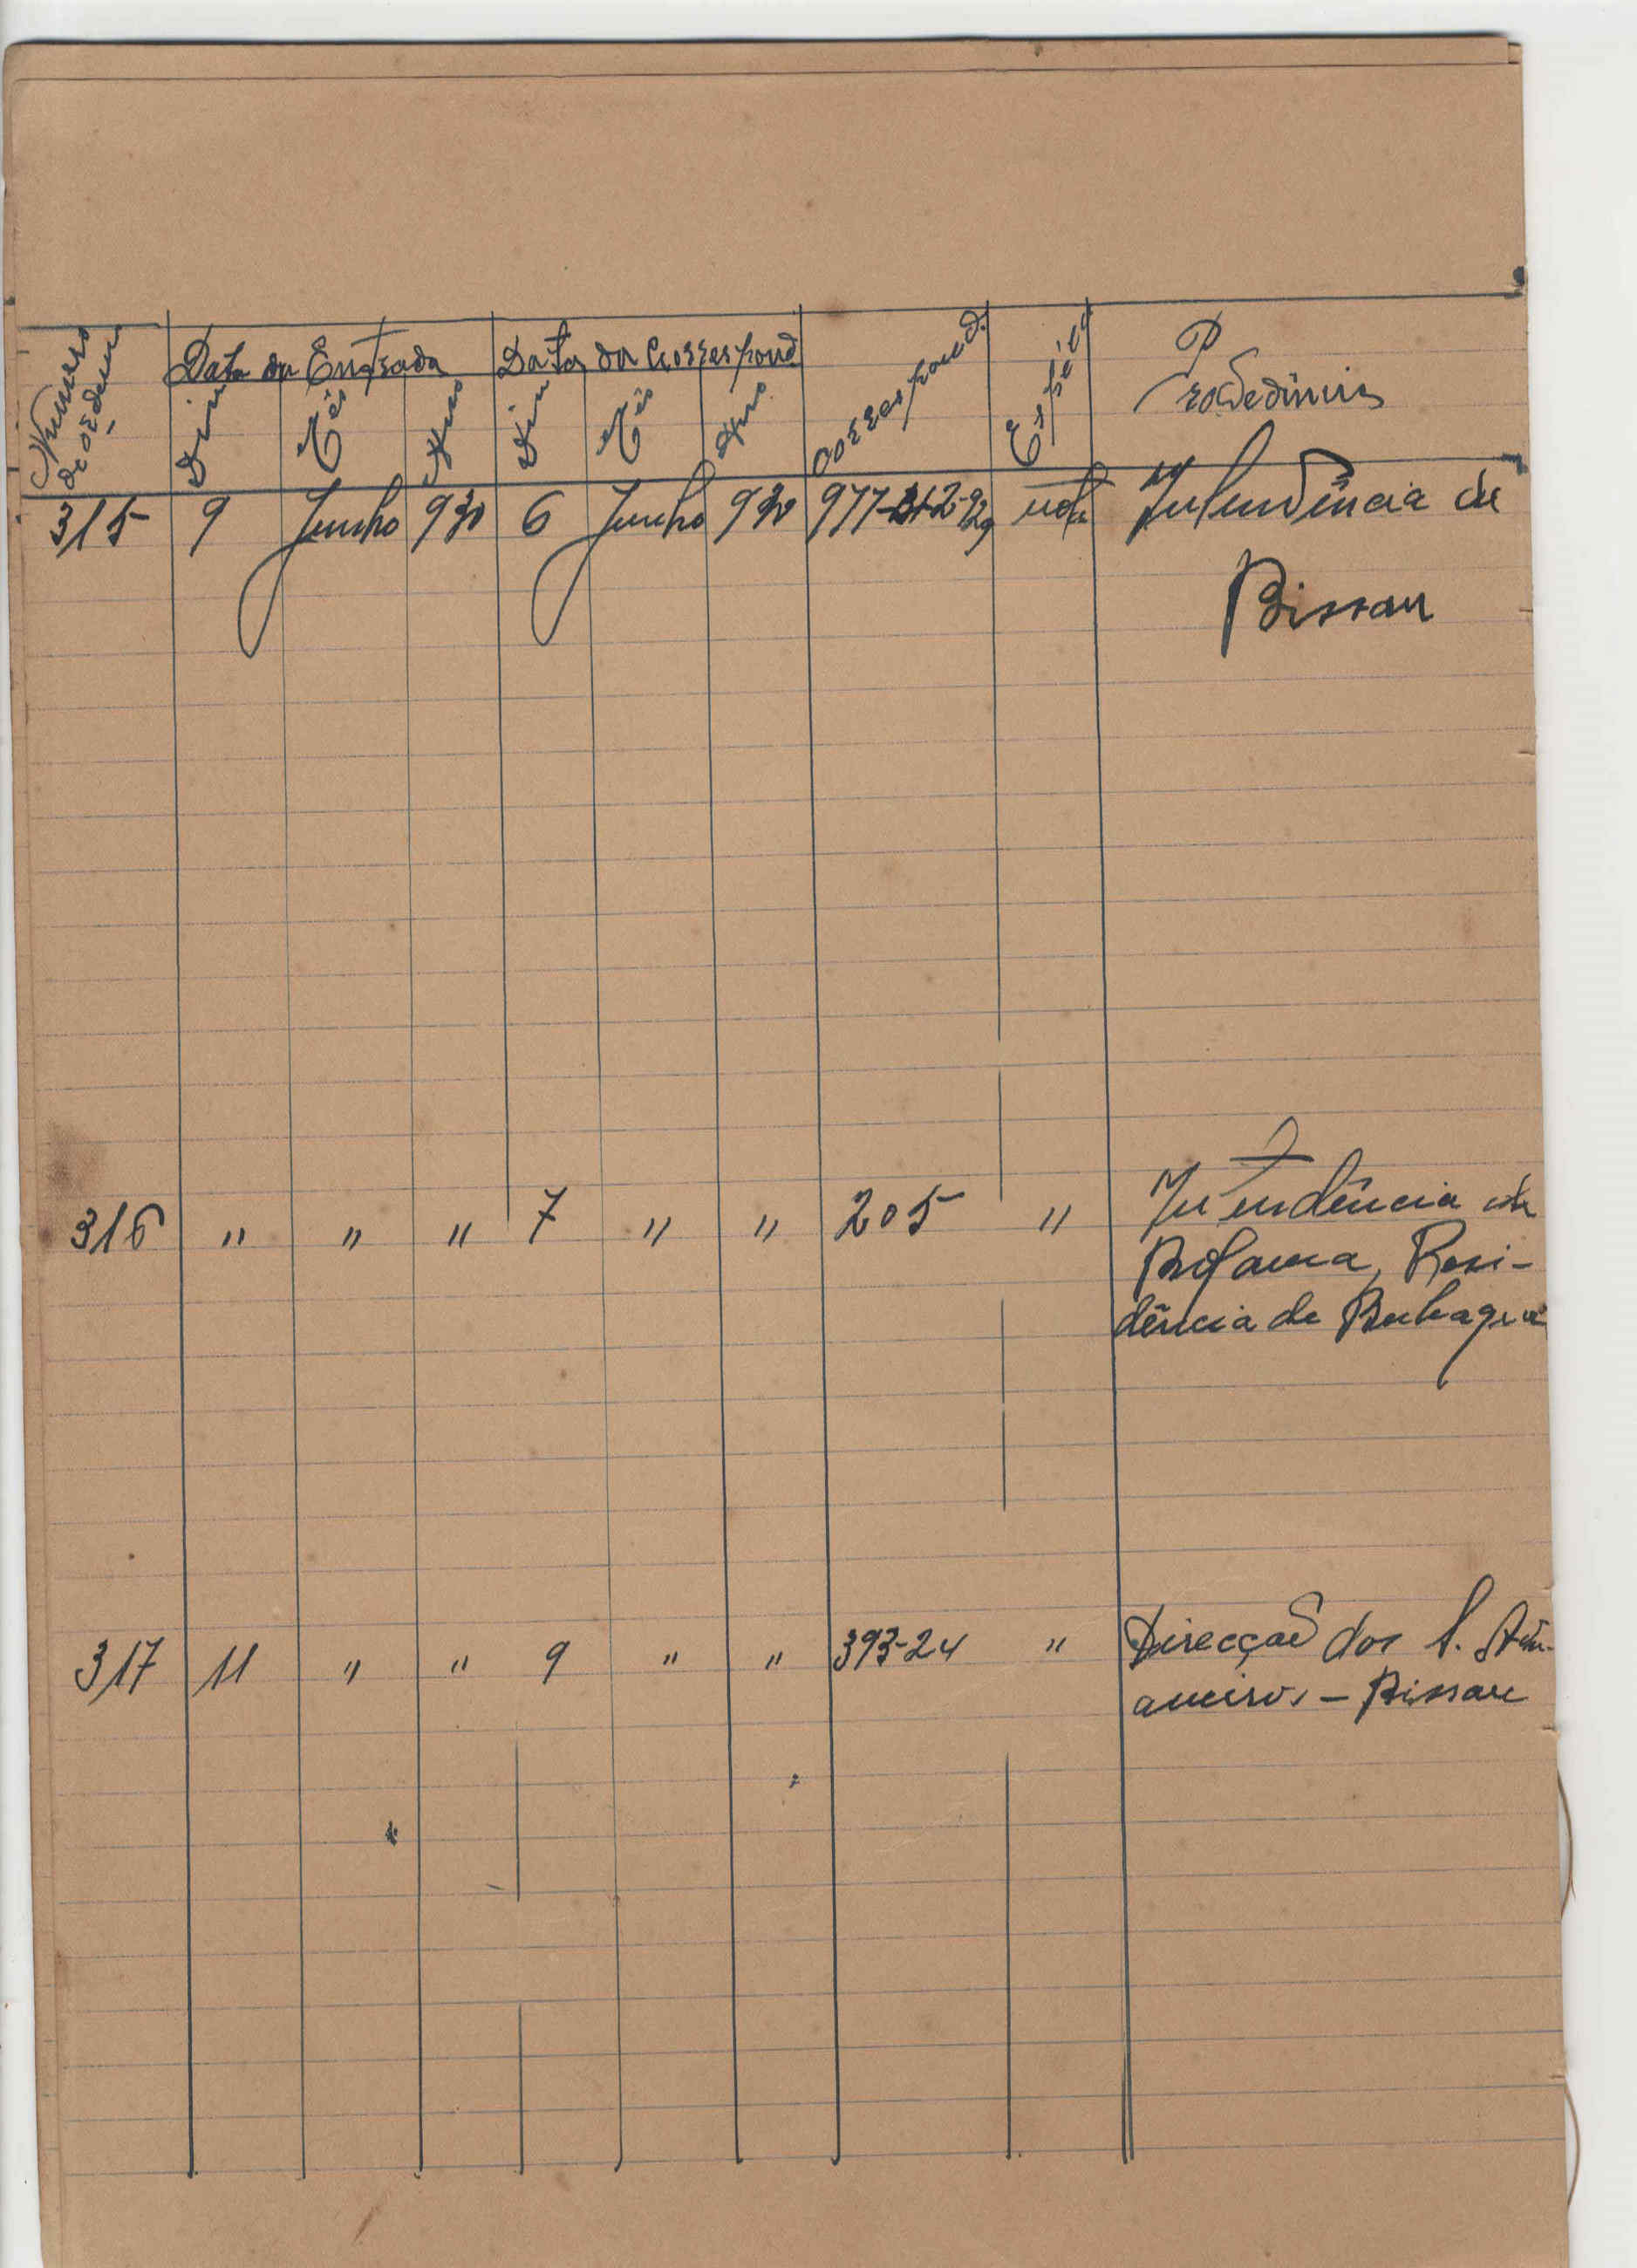 Numero de ordem
Data da Entrada Data da Correspond.
Dia Mês Ano Dia Mês Ano Correspond. Espécie Procedência
315 9 Junho 930 6 Junho 930 nota Intendência de
Bissau
316 " " " 7 " " 205 " Intendência de
Bolama, Resi-
dência de Bubaque
317 11 " " 9 " " 393-24 " Direcção dos S. Adu-
aneiros - Bissau